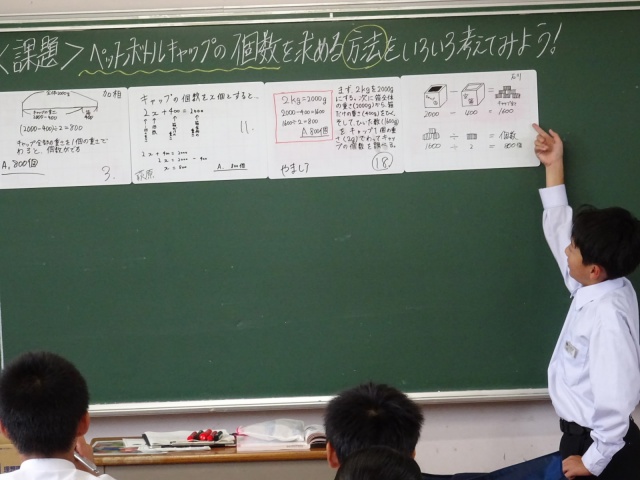 <課題>ペットボトルキャップの個数を求める方法をいろいろ考えてみよう!
全体2000g
(2000-400)÷2=800
キャップ全部の重さを1個の重さで
わると、個数がでる
A. 800個
3.
キャップの個数をx個とすると、
2x+400=2000
11.
2x+400=2000
2x=2000-400
x=800
A. 800個
萩原
2kg=2000g
2000-400=1600
1600÷2=800
A.800個
やまして
まず、2kgを2000g
にする。次に箱全体
の重さ(2000g)から、箱
だけの重さ(400g)をひく。
そしてひった数(1600g)
を キャップ1個の重
さ(2g)でわってキャッ
プの個数を調べる。
18.
2000 - 400 = 1600
÷ = 個数
1600 ÷ 2 = 800個